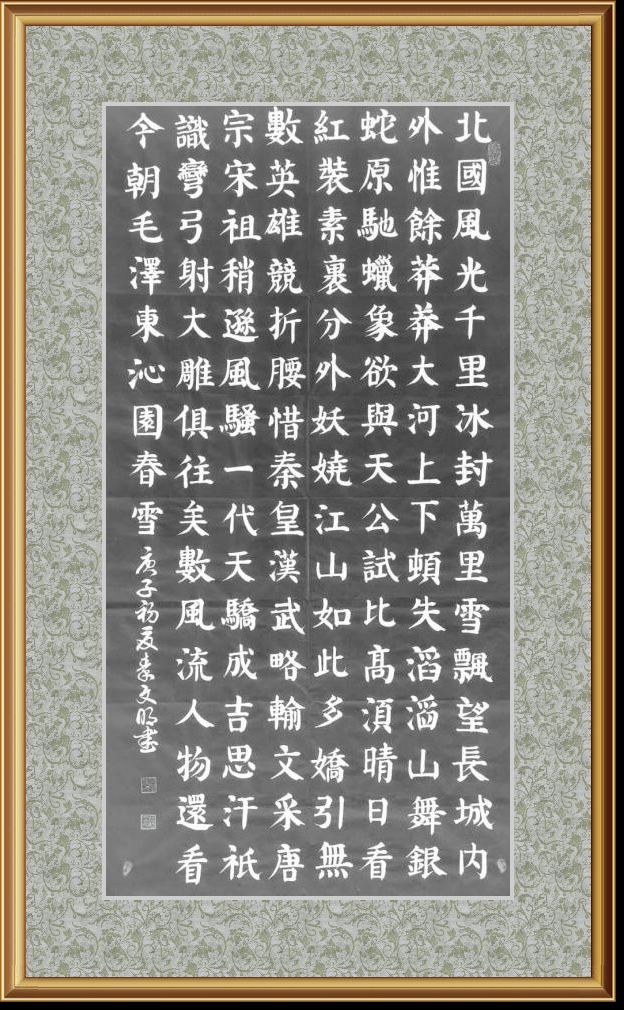 北國風光千里冰封萬里雪飄望長城内
外惟餘莽莽大河上下頓失滔滔山舞銀
蛇原馳蠟象欲與天公試比髙湏晴日看
紅裝素裹分外妖嬈江山如此多嬌引無
數英雄競折腰惜秦皇漢武略輸文采唐
宗宋祖稍遜風騷一代天驕成吉思汗祇
識彎弓射大雕俱往矣數風流人物還看
今朝毛澤東沁園春雪
庚子初夏文明書